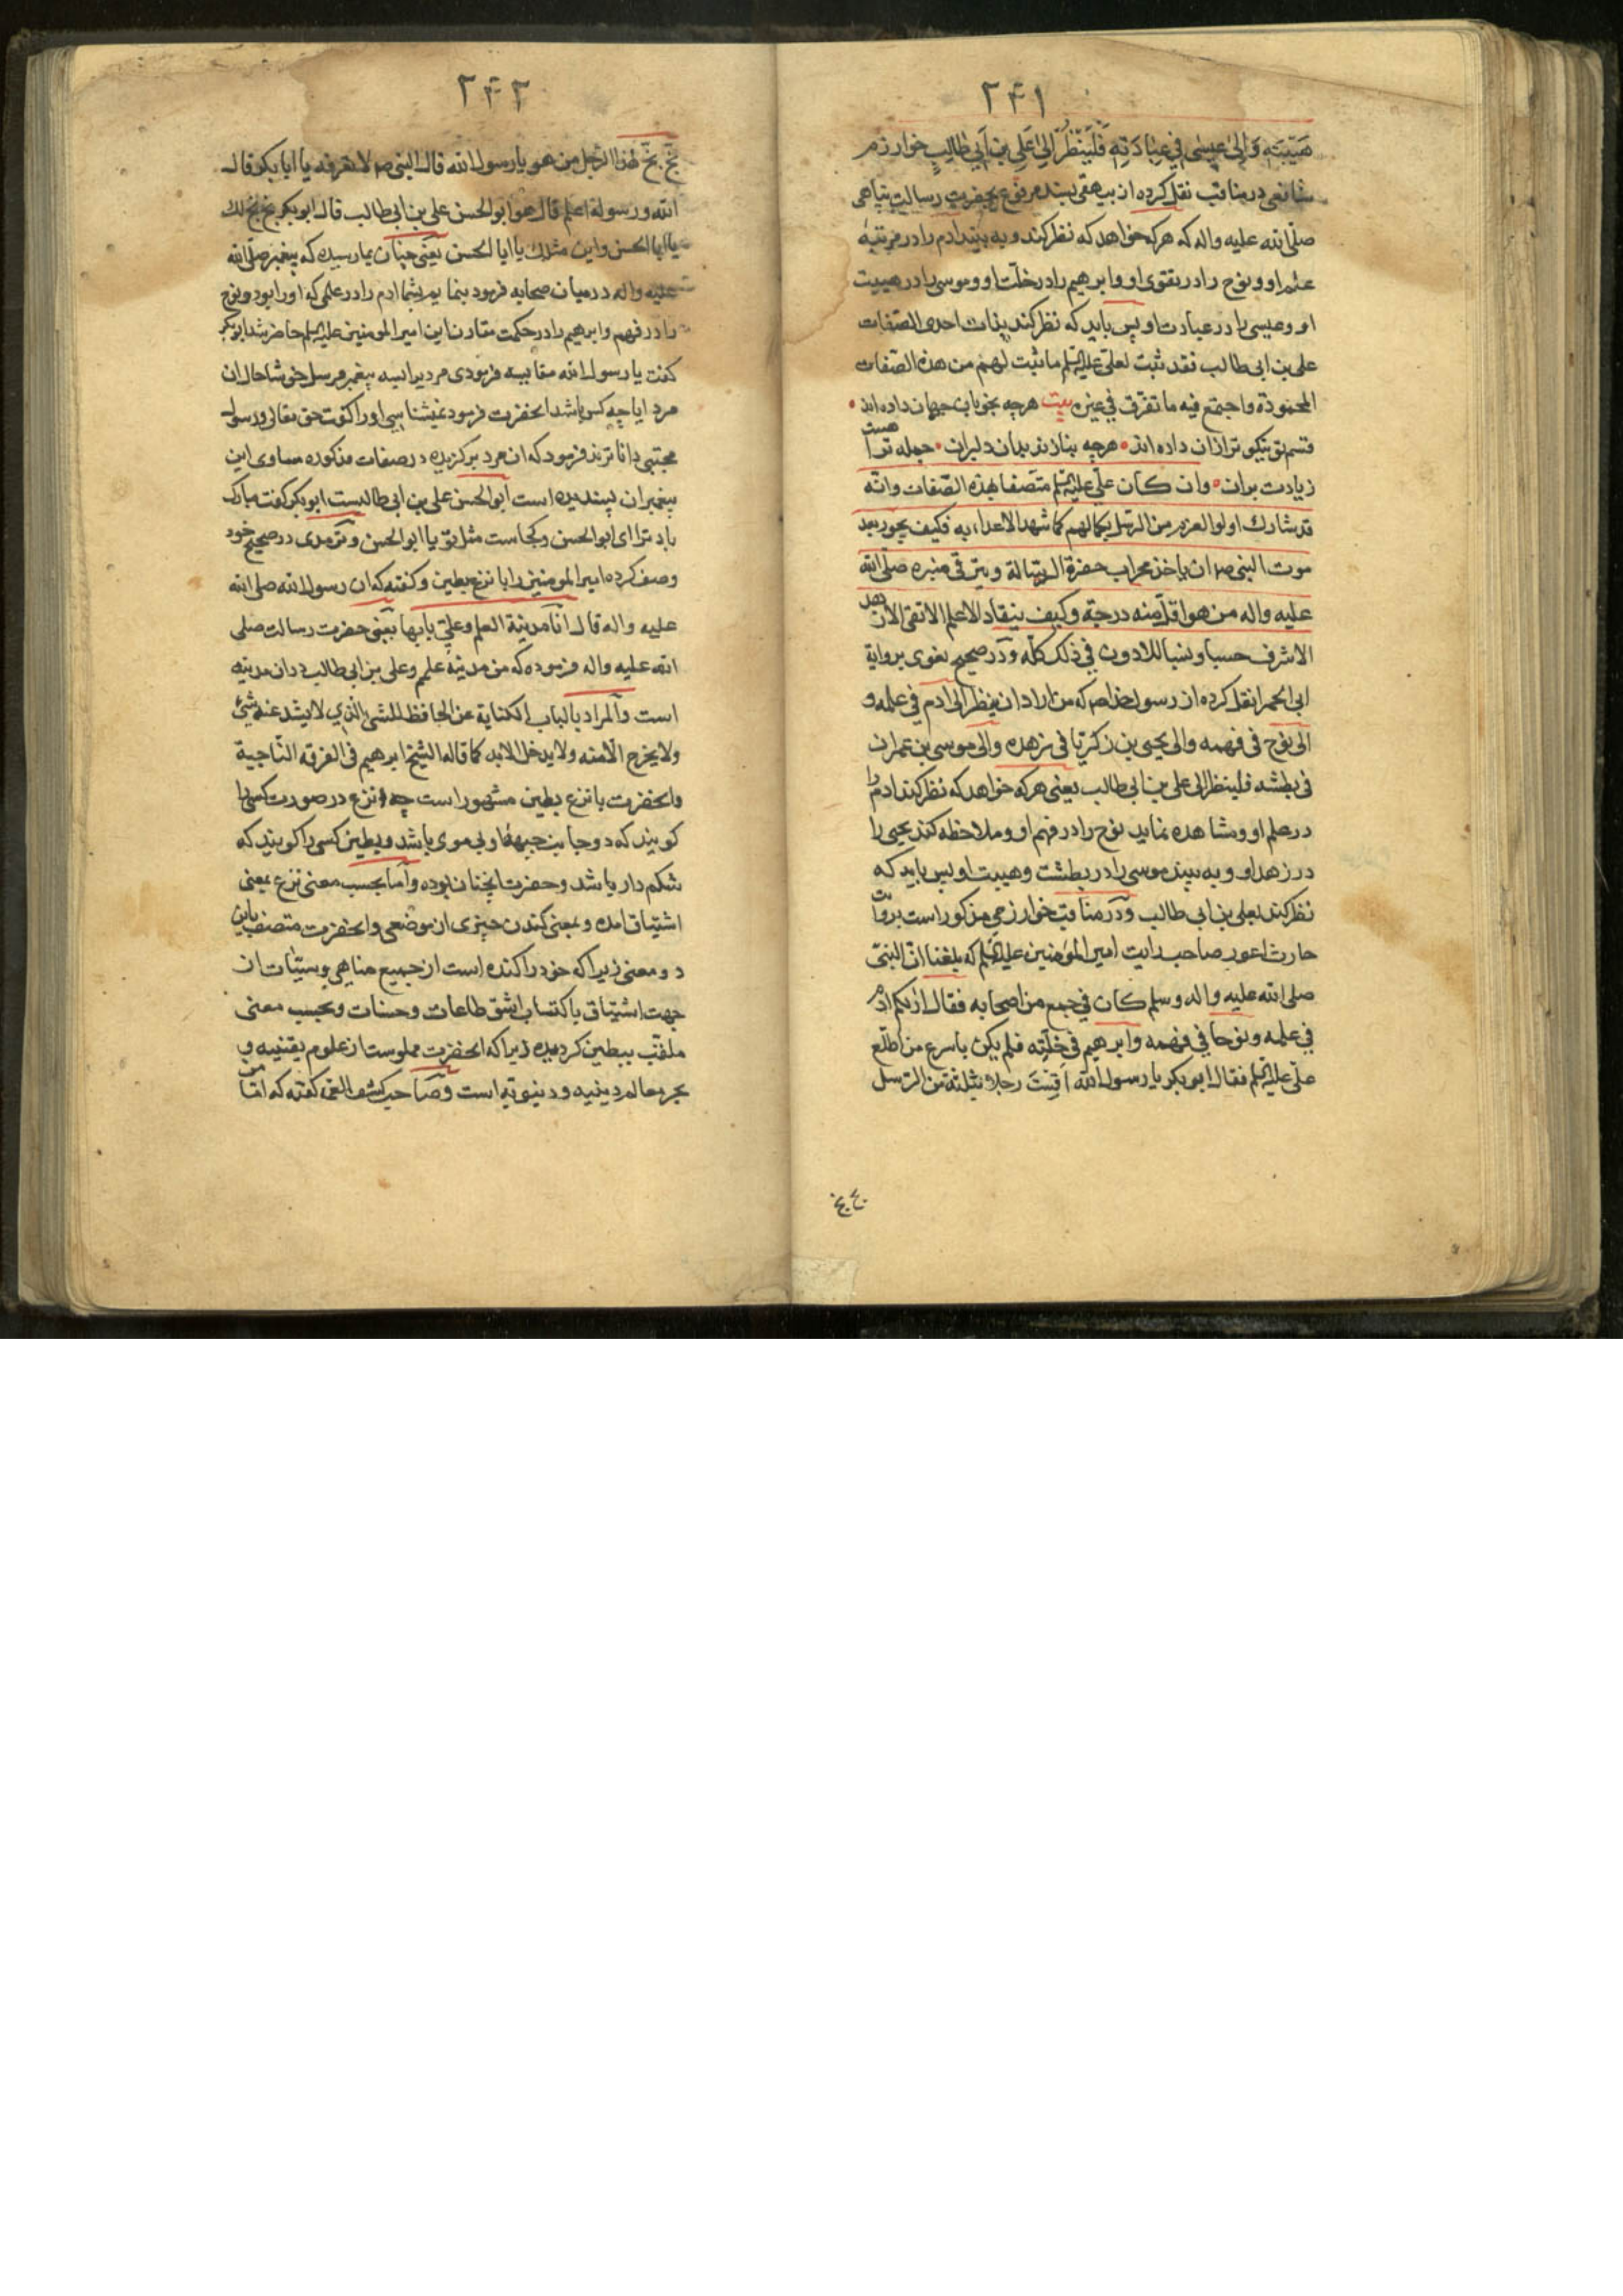 ۲۴۱
هَیْبَتِهِ وَاِلیٰ عیسٰی فِی عِبٰادَتِهِ فَلْیَنْظُرْ اِلیٰ عَلِیِ بنِ اَبِی طٰالِبٍ خوارزم
شافعی در مناقب نقل کرده از بیهقی بسند مرفوع بحضرت رسالت پناهی
صلّی الله علیه واله که هرکه خواهد که نظر کند و به بیند ادم را در مرتبهٔ
علم او و نوح را در تقوی او و ابرهیم را در خلّت او و موسی را در هیبت
او وعیسی را در عبادت او پس باید که نظر کند بذات احدی الصّفات
علی بن ابی طالب فقد ثبت لعلیّ علیه السّلم ما ثبت لهم من هذه الصّفات
المحمودة واجتمع فیه ما تفرّق فی غیره بیت هرچه بخوبان جهان داده اند
قسم تو نیکوتر ازان داده اند هرچه بنازند بدان دلبران جمله ترا هست
زیادت بران وان کان علیّ علیه السّلم متصفا بهذه الصّفات وانّه
قد شارک اولو العزم من الرّسل بکمالهم کما شهد الاعداء به فکیف یجوز بعد
موت النبی ص ان یاخذ محراب حضرة الرسالة ویترقی منبره صلّی الله
علیه واله من هو اقل منه درجة وکیف ینقاد الاعلم الاتقی الازهد
الاشرف حسبا ونسبا للادون فی ذلک کلّه ودر صحیح بغوی بروایة
ابی الحمرا نقل کرده از رسول خدا ص که من اراد ان ینظر الی ادم فی علمه و
الی نوح فی فهمه والی یحیی بن زکریّا فی زهده والی موسی بن عمران
فی بطشه فلینظر الی علی بن ابی طالب یعنی هرکه خواهد که نظر کند ادم را
در علم او و مشاهده نماید نوح را در فهم او وملاحظه کند یحیی را
در زهد او و به بیند موسی را در بطشت وهیبت او پس باید که
نظر کند بعلی بن ابی طالب ودر مناقب خوارزمی مذکور است بروایت
حارث اعور صاحب رایت امیر المؤمنین علیه السّلم که بلغنا انّ النبیّ
صلی الله علیه واله وسلم کان فی جمع من اصحابه فقال اریکم ادم
فی علمه ونوحا فی فهمه وابرهیم فی خلّته فلم یکن باسرع من اطّلع
علیّ علیه السّلم فقال ابوبکر یا رسول الله اَقِسْتَ رجلا بثلثة من الرّسل
بخ بخ
۲۴۲
بَخّ بَخّ لهذا الرّجل من هو یا رسول الله قال النبی ص الا تعرفه یا ابابکر قال
الله ورسوله اعلم قال هو ابو الحسن علی بن ابی طالب قال ابوبکر بخ بخ لک
یا ابا الحسن واین مثلک یا ابا الحسن یعنی چنان بما رسیده که پیغمبر صلّی الله
علیه واله در میان صحابه فرمود بنمایم بشما ادم را در علمی که او را بود ونوح
را در فهم وابرهیم را در حکمت مقارن این امیر المومنین علیه السلم حاضر شد ابوبکر
گفت یا رسول الله مقایسه فرمودی مردیرا بسه پیغمبر مرسل خوشا حال ان
مرد ایا چه کس باشد انحضرت فرمود نمیشناسی او را گفت حق تعالی ورسول
مجتبی داناترند فرمود که ان مرد برگزیده در صفات مذکوره مساوی این
پیغمبران پسندیده است ابو الحسن علی بن ابی طالبست ابوبکر گفت مبارک
باد ترا ای ابو الحسن وکجاست مثل تو یا ابو الحسن وترمذی در صحیح خود
وصف کرده امیر المومنین را بانزع بطین وگفته که ان رسول الله صلی الله
علیه واله قال انا مدینة العلم وعلیّ بابها یعنی حضرت رسالت صلی
الله علیه واله فرموده که من مدینهٔ علمم وعلی بن ابی طالب در ان مدینه
است والمراد بالباب الکنایة عن الحافظ للشئ الذی لا یشذ عنه شئ
ولا یخرج الّا منه ولا یدخل الا به کما قاله الشیخ ابرهیم فی الفرقه النّاجیة
وانحضرت بانزع بطین مشهور است چه انزع در صورت کسی را
گویند که دو جانب جبههٔ او بی موی باشد وبطین کسی را گویند که
شکم دار باشد وحضرت اینچنان بوده واما بحسب معنی نزع بمعنی
اشتیاق امده وبمعنی کندن چیزی از موضعی وانحضرت متصف باین
دو معنی زیرا که خود را کنده است از جمیع مناهی وسیّئات از
جهت اشتیاق باکتساب اشق طاعات وحسنات وبحسب معنی
ملقّب ببطین گردیده زیرا که انحضرت مملوست از علوم یقینیه و
بحر معالم دینیه ودنیویّه است وصاحب کشف الغمه گفته که امّا